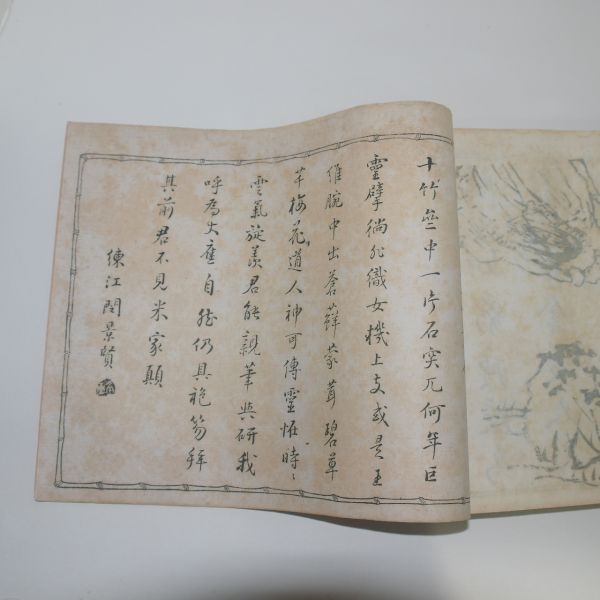 十竹齋中一片石突兀何年巨
靈擘倘非織女機上支或是王
維腕中出蒼蘚蒙茸碧草
芊梅花道人神可傳靈怪時〻
雲氣旋羨君能親筆與研我
呼為丈應自能仍具袍笏拜
其前君不見米家顛
練江閔景賢